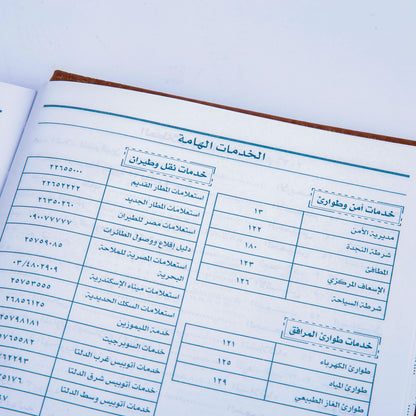 الخدمات الهامة
خدمات أمن وطوارئ
مديرية الأمن ١٣
شرطة النجدة ١٢٢
المطافئ ١٨٠
الإسعاف المركزي ١٢٣
شرطة السياحة ١٢٦
خدمات طوارئ المرافق
طوارئ الكهرباء ١٢١
طوارئ المياه ١٢٥
طوارئ الغاز الطبيعي ١٢٩
خدمات نقل وطيران
استعلامات المطار القديم ٢٢٦٥٥٠٠٠
استعلامات المطار الجديد ٢٢٦٥٢٢٢٢
استعلامات مصر للطيران ٢١٣٥٠٢٦٠
دليل إقلاع ووصول الطائرات ٠٩٠٧٧٧٧٧
استعلامات المصرية للملاحة ٢٥٧٥٩٠٨٥
البحرية
استعلامات ميناء الإسكندرية ٠٣/٤٨٠٢٩٠٩
استعلامات السكك الحديدية ٢٥٧٥٣٥٥٥
خدمة الليموزين ٢٦٨٥٦١٢٥
خدمات السوبرجيت
خدمات أتوبيس غرب الدلتا
خدمات أتوبيس شرق الدلتا
خدمات أتوبيس وسط الدلتا